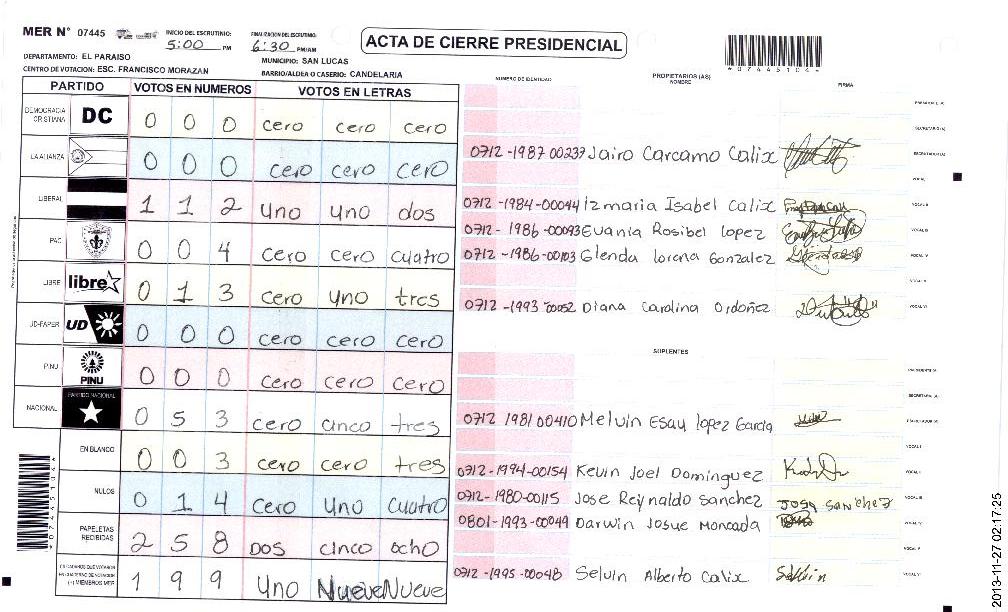 MER N° 07445
INICIO DEL ESCRUTINIO: 5:00 PM
FINALIZACION DEL ESCRUTINIO: 6:30 PM/AM
ACTA DE CIERRE PRESIDENCIAL
*07445104*
DEPARTAMENTO: EL PARAISO
MUNICIPIO: SAN LUCAS
CENTRO DE VOTACION: ESC. FRANCISCO MORAZAN
BARRIO/ALDEA O CASERIO: CANDELARIA
PARTIDO VOTOS EN NUMEROS VOTOS EN LETRAS
NUMERO DE IDENTIDAD PROPIETARIOS (AS) NOMBRE FIRMA
DEMOCRACIA CRISTIANA DC 0 0 0 cero cero cero
LA ALIANZA 0 0 0 cero cero cero
LIBERAL 1 1 2 uno uno dos
PAC 0 0 4 cero cero cuatro
LIBRE libre 0 1 3 cero uno tres
UD-FAPER UD 0 0 0 cero cero cero
PINU PINU 0 0 0 cero cero cero
NACIONAL PARTIDO NACIONAL 0 5 3 cero cinco tres
EN BLANCO 0 0 3 cero cero tres
NULOS 0 1 4 cero uno cuatro
PAPELETAS RECIBIDAS 2 5 8 dos cinco ocho
CIUDADANOS QUE VOTARON EN CUADERNO DE VOTACION (+) MIEMBROS MER 1 9 9 uno Nueve Nueve
0712-1987 00237 Jairo Carcamo Calix
0712-1984-00044 Izmaria Isabel Calix
0712-1986-00093 Evania Rosibel lopez
0712-1986-00103 Glenda lorena Gonzalez
0712-1993-00052 Diana Carolina Ordoñez
SUPLENTES
0712 1981 00410 Melvin Esau lopez Garcia
0712-1994-00154 Kevin Joel Dominguez
0712-1980-00115 Jose Reynaldo Sanchez Jose Sanchez
0801-1993-00049 Darwin Josue Moncada
0712-1995-00048 Selvin Alberto Calix Selvin
*07445104*
2013-11-27 02:17:25